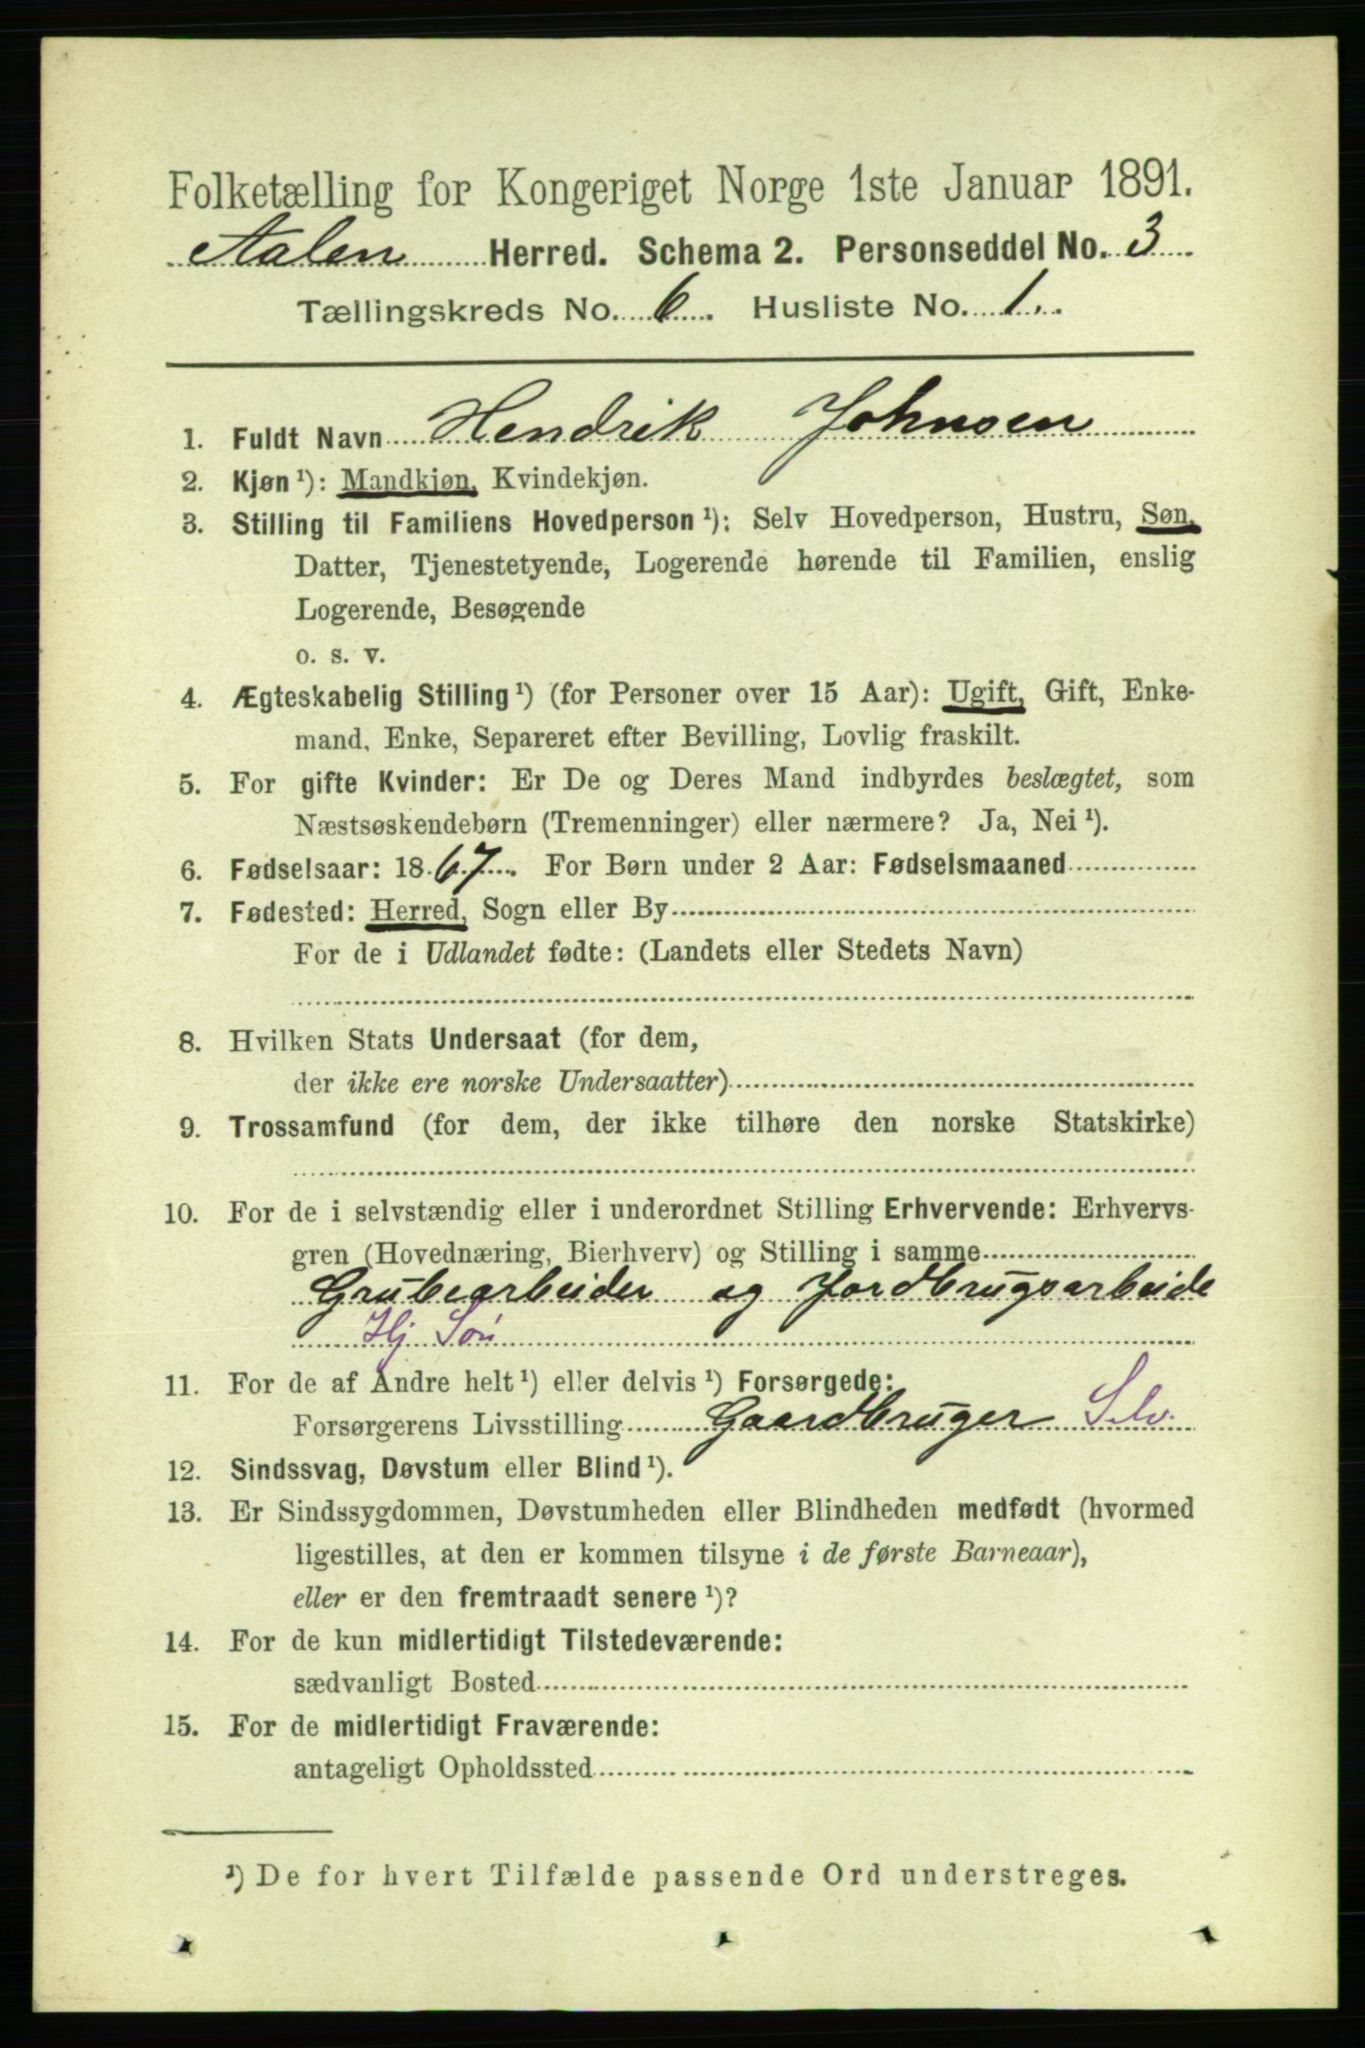 Folketælling for Kongeriget Norge 1ste Januar 1891.
Aalen Herred. Schema 2. Personseddel No. 3
Tællingskreds No. 6. Husliste No. 1.
1. Fuldt Navn Hendrik Johnsen
2. Kjøn ¹): Mandkjøn, Kvindekjøn.
3. Stilling til Familiens Hovedperson ¹): Selv Hovedperson, Hustru, Søn,
Datter, Tjenestetyende, Logerende hørende til Familien, enslig
Logerende, Besøgende
o. s. v.
4. Ægteskabelig Stilling ¹) (for Personer over 15 Aar): Ugift, Gift, Enke-
mand, Enke, Separeret efter Bevilling, Lovlig fraskilt.
5. For gifte Kvinder: Er De og Deres Mand indbyrdes beslægtet, som
Næstsøskendebørn (Tremenninger) eller nærmere? Ja, Nei ¹).
6. Fødselsaar: 1867. For Børn under 2 Aar: Fødselsmaaned
7. Fødested: Herred, Sogn eller By
For de i Udlandet fødte: (Landets eller Stedets Navn)
8. Hvilken Stats Undersaat (for dem,
der ikke ere norske Undersaatter)
9. Trossamfund (for dem, der ikke tilhøre den norske Statskirke)
10. For de i selvstændig eller i underordnet Stilling Erhvervende: Erhvervs-
gren (Hovednæring, Bierhverv) og Stilling i samme
Grubearbeider og Jordbrugsarbeide
Hj Søn
11. For de af Andre helt ¹) eller delvis ¹) Forsørgede:
Forsørgerens Livsstilling Gaardbruger Selv.
12. Sindssvag, Døvstum eller Blind ¹).
13. Er Sindssygdommen, Døvstumheden eller Blindheden medfødt (hvormed
ligestilles, at den er kommen tilsyne i de første Barneaar),
eller er den fremtraadt senere ¹)?
14. For de kun midlertidigt Tilstedeværende:
sædvanligt Bosted
15. For de midlertidigt Fraværende:
antageligt Opholdssted
¹) De for hvert Tilfælde passende Ord understreges.